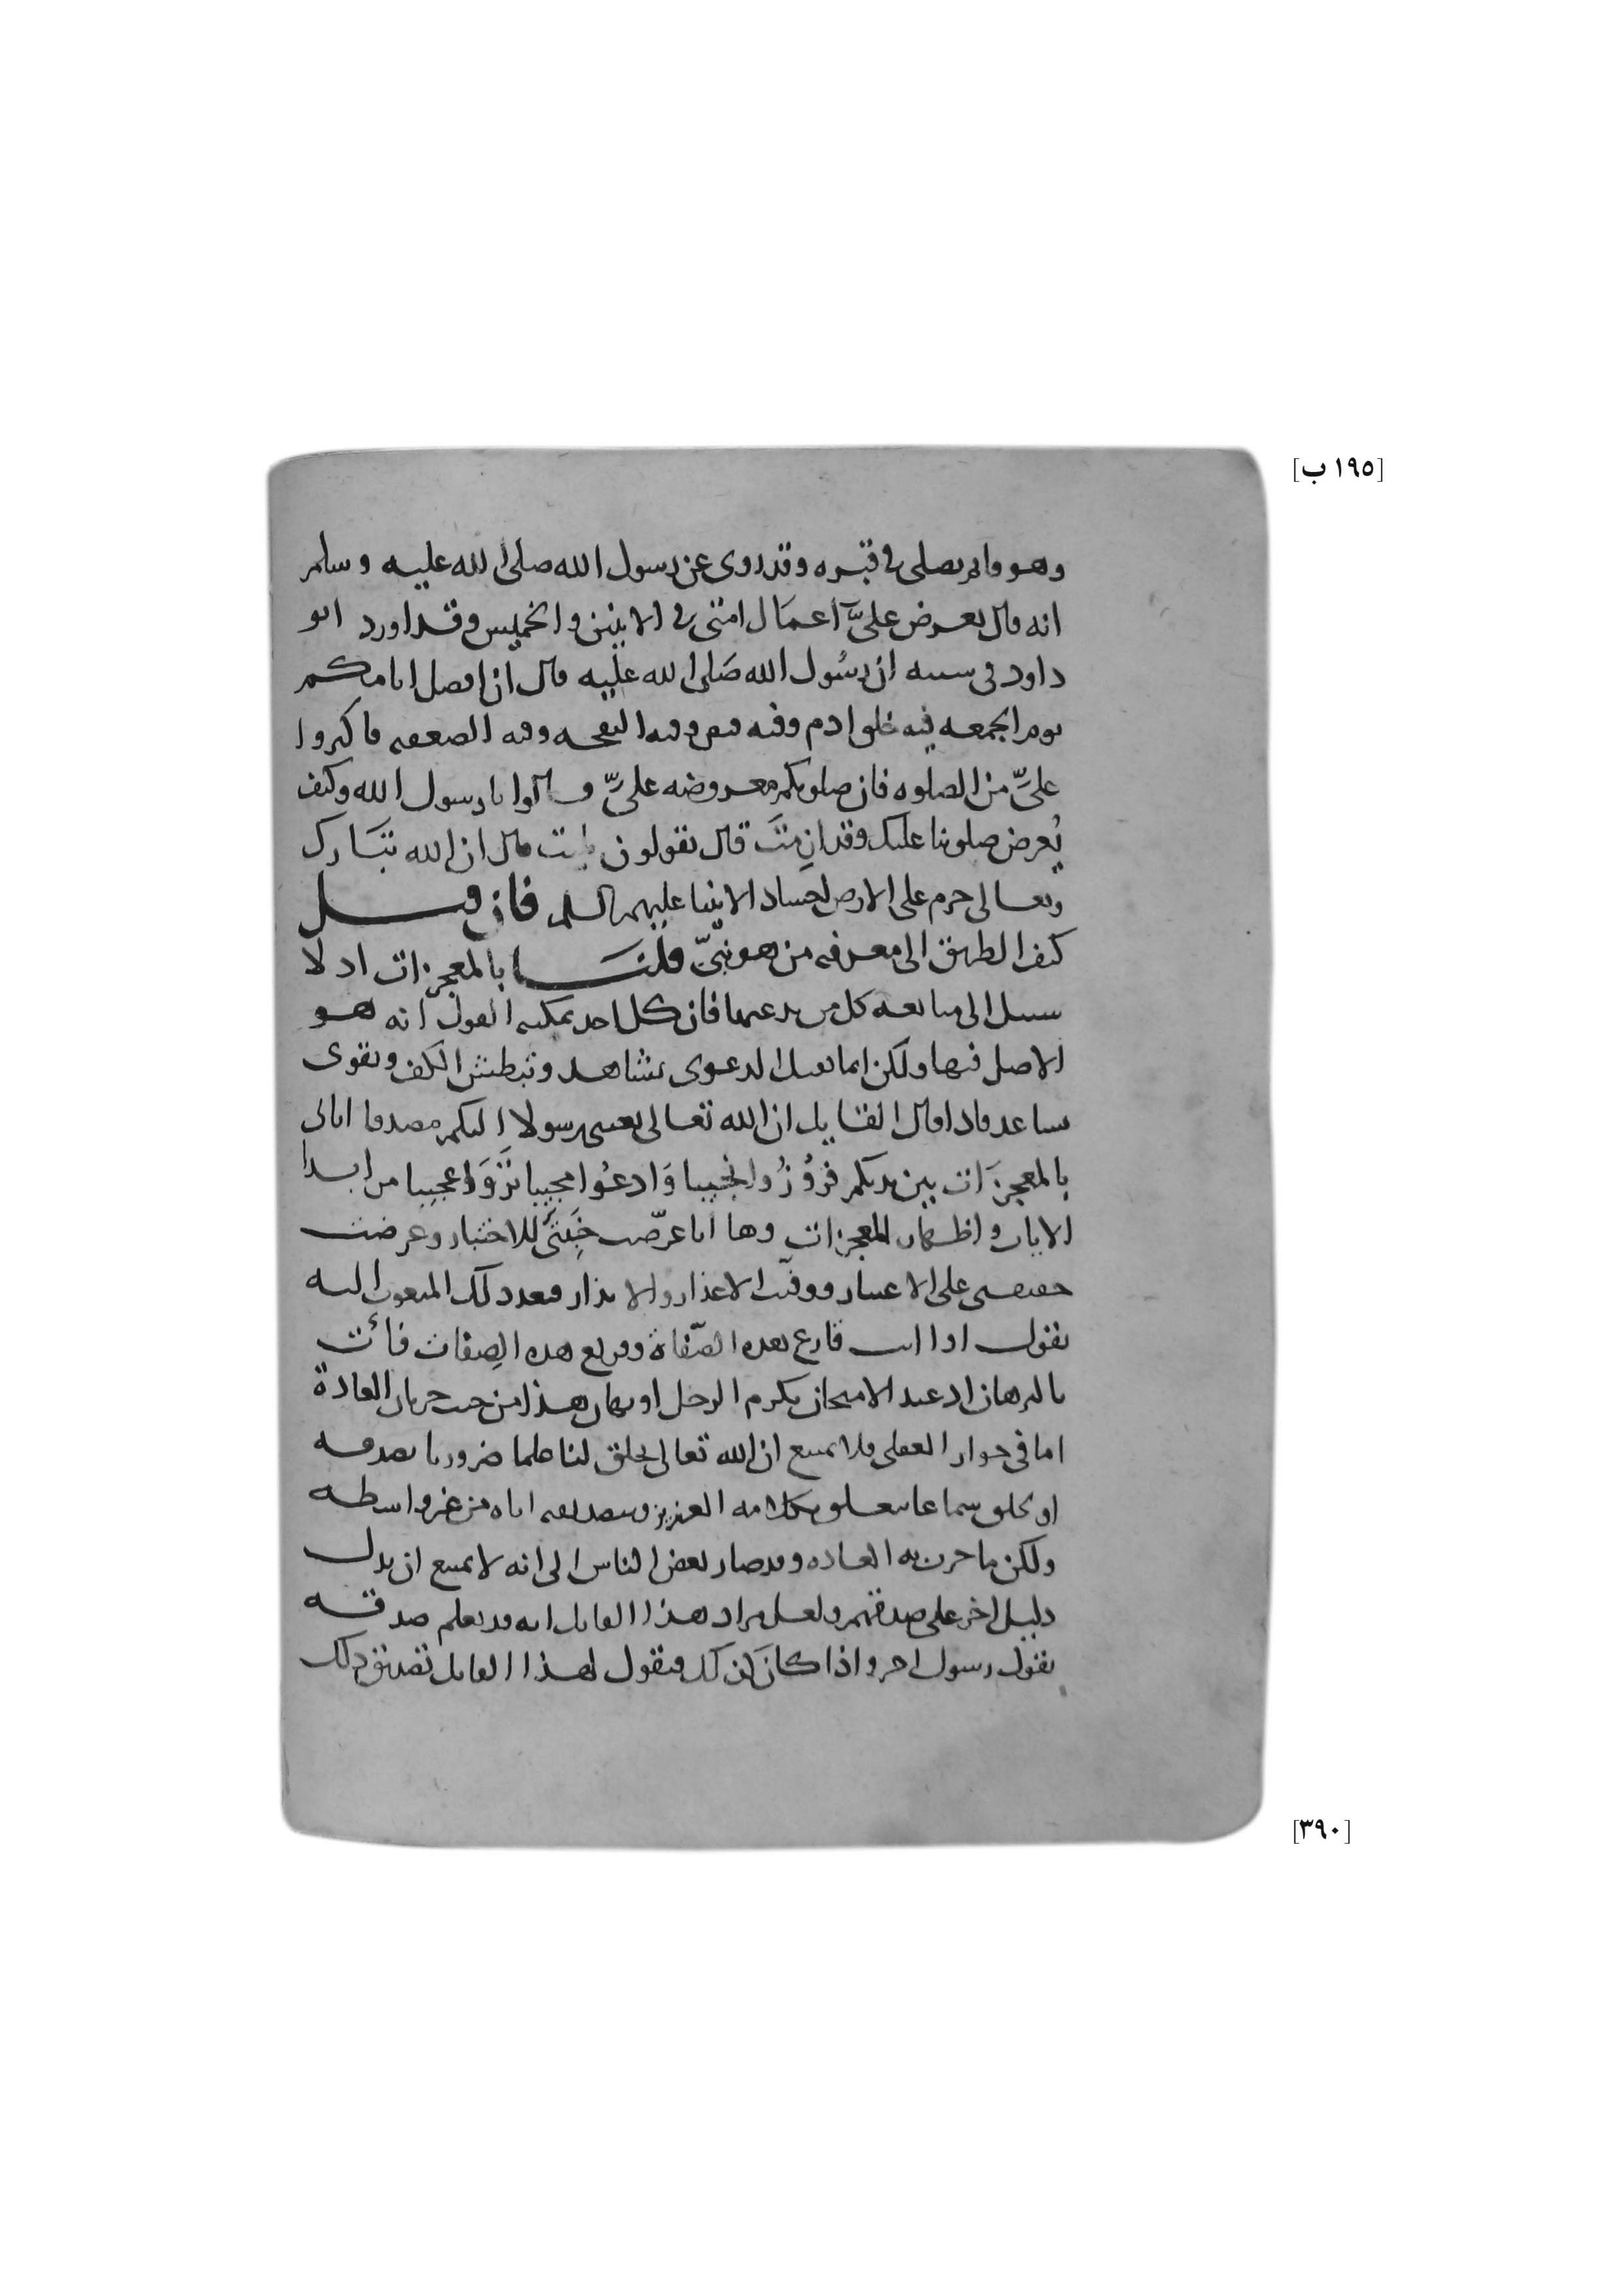 [١٩٥ ب]
وهو قايم يصلى في قبره وقد روى عن رسول الله صلى الله عليه وسلم
انه قال يعرض علىّ اعمال امتى في الاثنين والخميس وقد اورد ابو
داود في سننه ان رسُول الله صَلى الله عليه قال ان افضل ايامكم
يوم الجمعه فيه خلق ادم وفيه قبض وفيه النفخه وفيه الصعقه فاكثروا
علىَّ من الصلوه فان صلوتكم معروضه علىَّ قالوا يا رسول الله وكيف
يُعرض صلوتنا عليك وقد ارمتَ قال يقولون بليت قال ان الله تبَارك
وتعالى حرم على الارض اجساد الانبيا عليهم السلم فان قيل
كيف الطريق الى معرفه من هو نبىّ قلنَا بالمعجزات اذ لا
سبيل الى متابعه كل من يدعيها فان كل احد يمكنه القول انه هو
الاصل فيها ولكن انما تقبل الدعوى بشاهد وتبطش الكف وتقوى
بساعد فاذا قال القايل ان الله تعالى بعثنى رسولا اليكم مصدقا اياى
بالمعجزَات بين يديكم فزُوزُوا نجيبا وَادعُوا مجيبا تَرَوا عجيبا من ابدا
الايات واظهار المعجزات وها انا عرّضت للاختبار وعرضت
حقيقتى على الاعتبار ووفيت الاعذار والانذار فبعد ذلك المبعوث اليه
يقول اذا انت قارع بهذه الصّفاة هذه الصِفات فأت
بالبرهان اذ عند الامتحان يكرم الرجل او يهان هذا من حيث جريان العادة
اما في جواز العقلى فلا يمتنع ان الله تعالى يخلق لنا علما ضروريا بصدقه
او يخلق سماعا يتعلق بكلامه العزيز وبتصديقه اياه من غير واسطه
ولكن ما جرت به العاده وقد صار بعض الناس الى انه لا يمتنع ان يدل
دليل اخر على صدقهم ولعل مراد هذا القايل انه قد يعلم صدقه
بقول رسول اخر واذا كان كذلك فنقول لهذا القايل تصديق ذلك
[٣٩٠]